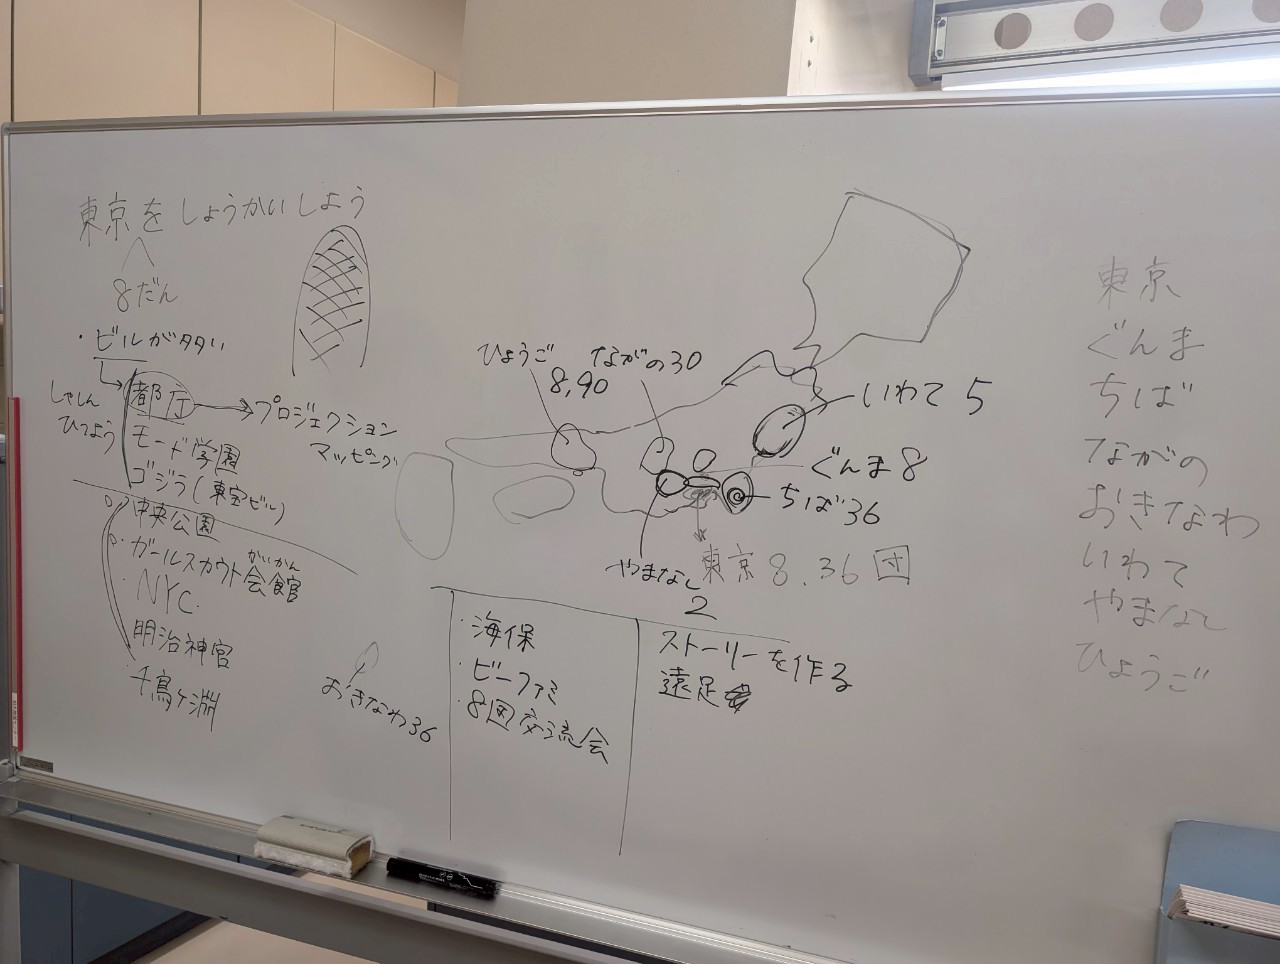 東京をしょうかいしよう
8だん
・ビルが多い
しゃしん
ひつよう
都庁
プロジェクション
マッピング
モード学園
ゴジラ(東宝ビル)
中央公園
ガールスカウト会館
がいかん
・NYC.
明治神宮
千鳥ヶ淵
ひょうご
8,90
ながの30
いわて 5
ぐんま8
ちば36
東京8.36団
やまなし
2
おきなわ36
・海保
・ビーファミ
・8団交流会
ストーリーを作る
遠足
東京
ぐんま
ちば
ながの
おきなわ
いわて
やまなし
ひょうご